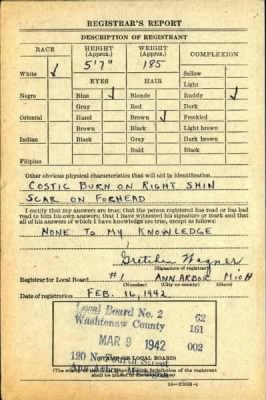 REGISTRAR'S REPORT
DESCRIPTION OF REGISTRANT
RACE HEIGHT (Approx.) WEIGHT (Approx.) COMPLEXION
5'7" 185
White ✓ Sallow
EYES HAIR Light
Negro Blue ✓ Blonde Ruddy ✓
Gray Red Dark
Oriental Hazel Brown ✓ Freckled
Brown Black Light brown
Indian Black Gray Dark brown
Bald Black
Filipino
Other obvious physical characteristics that will aid in identification
COSTIC BURN ON RIGHT SHIN
SCAR ON FORHEAD
I certify that my answers are true; that the person registered has read or has had
read to him his own answers; that I have witnessed his signature or mark and that
all of his answers of which I have knowledge are true, except as follows:
NONE TO MY KNOWLEDGE
Gretchen Wagner
(Signature of registrar)
Registrar for Local Board #1 ANN ARBOR MICH
(Number) (City or county) (State)
Date of registration FEB. 16, 1942
Local Board No. 2 62
Washtenaw County 161
MAR 9 1942 002
120 No. Fourth Street
(STAMP OF LOCAL BOARD)